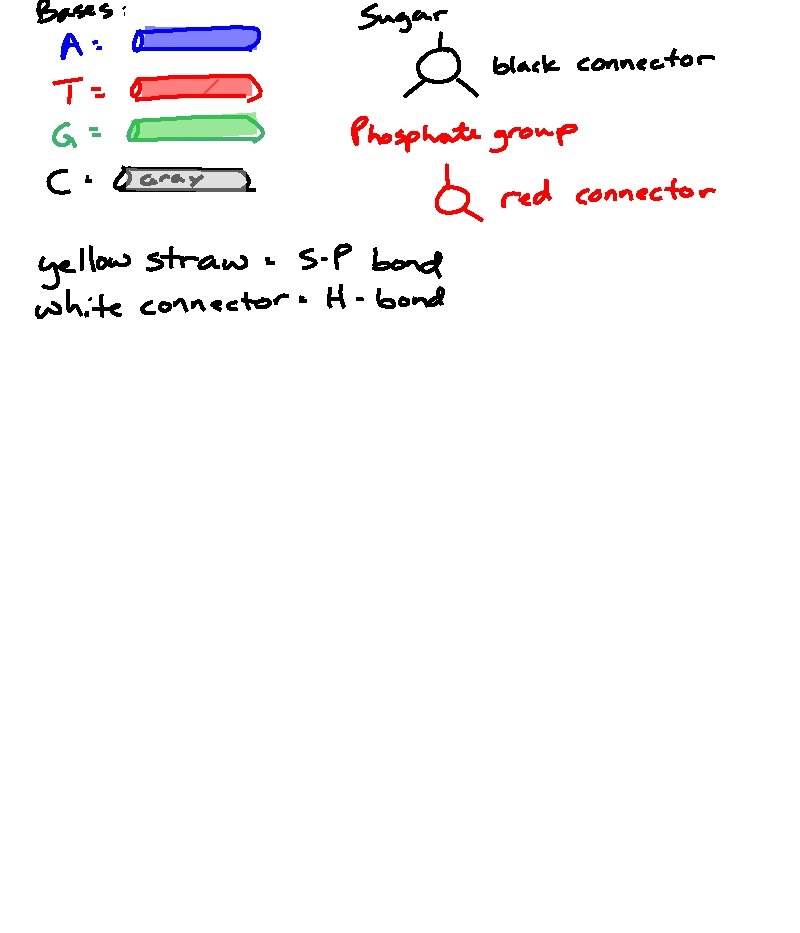 Bases:
A =
T =
G =
C = Gray
Sugar
black connector
Phosphate group
red connector
yellow straw = S-P bond
white connector = H-bond